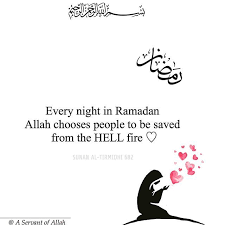 بسم الله الرحمن الرحيم
رمضان
Every night in Ramadan
Allah chooses people to be saved
from the HELL fire ♡
SUNAN AL-TIRMIDHI 682
@ A Servant of Allah